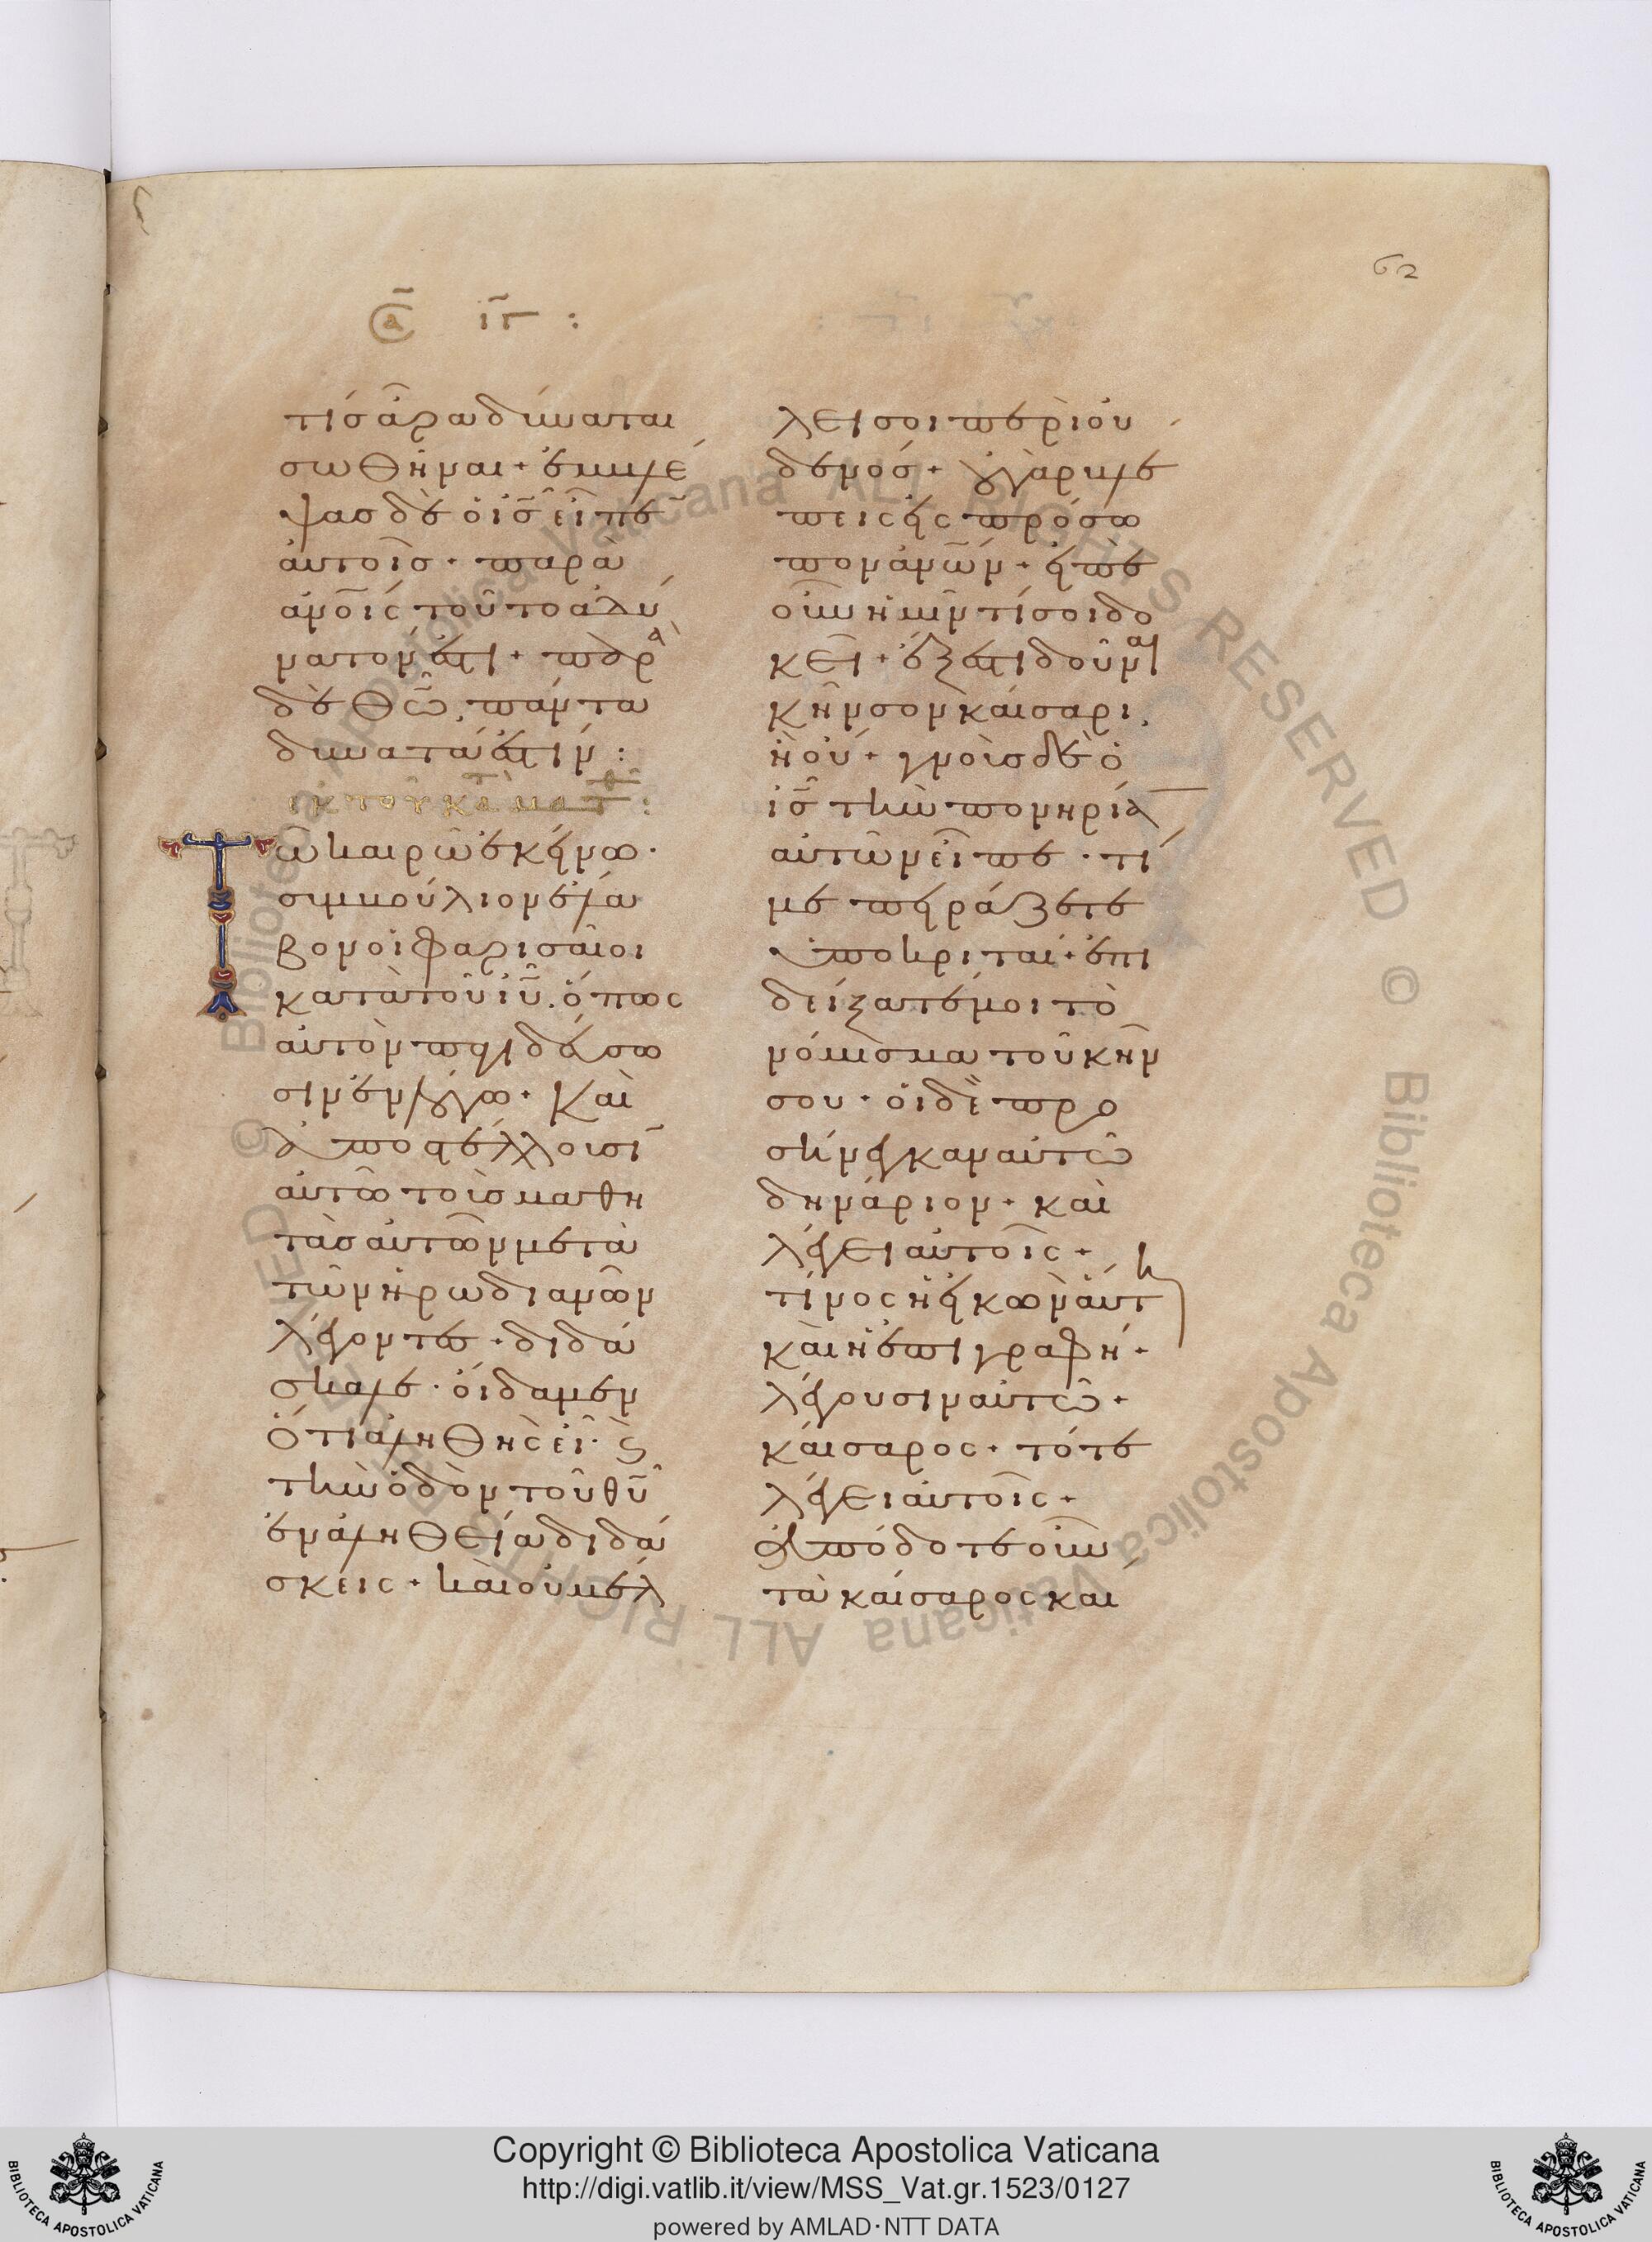 62
α̅ ι̅γ̅ :
τίσ ἄρα δύναται
σωθῆναι · ἐμβλέ
ψας δὲ ὁ ι̅σ̅ εἶπε
αὐτοῖσ · παρὰ
α̅ν̅ο̅ι̅ς τοῦτο ἀδύ
νατον ἐστι · παρὰ
δὲ θ̅ω̅ πάντα
δυνατά ἐστιν :
ἐκ τοῦ κατὰ ματθ :
Τῶ καιρῶ ἐκείνω ·
συμβούλιον ἔλα
βον οἱ φαρισαῖοι
κατὰ τοῦ ι̅υ̅. ὅπως
αὐτὸν παγιδεύσω
σιν ἐν λόγω · καὶ
ἀποστέλλουσι
αὐτῶ τοὺσ μαθη
τὰσ αὐτῶν μετὰ
τῶν ἡρωδιανῶν
λέγοντες · διδά
σκαλε · οἴδαμεν
ὅτι ἀληθὴς εἶ · ϗ
τὴν ὁδὸν τοῦ θ̅υ̅
ἐν ἀληθεία διδά
σκεις · καὶ οὐ μέλ
λει σοι περὶ οὐ
δενόσ · οὐ γὰρ βλέ
πεις εἰς πρόσω
πον α̅ν̅ων · εἰπὲ
οὖν ἡμῖν τί σοι δο
κεῖ · ἔξεστι δοῦναι
κῆνσον καίσαρι,
ἢ οὔ · γνοὺσ δὲ ὁ
ι̅σ̅ τὴν πονηρία
αὐτῶν εἶπε · τί
με πειράζετε
ὑποκριταί · ἐπι
δείξατέ μοι τὸ
νόμισμα τοῦ κήν
σου · οἱ δὲ προ
σήνεγκαν αὐτῶ
δηνάριον · καὶ
λέγει αὐτοῖς ·
τίνος ἡ εἰκὼν αὕτη
καὶ ἡ ἐπιγραφή ·
λέγουσιν αὐτῶ ·
καίσαρος · τότε
λέγει αὐτοῖς ·
ἀπόδοτε οὖν
τὰ καίσαρος και
Copyright © Biblioteca Apostolica Vaticana
http://digi.vatlib.it/view/MSS_Vat.gr.1523/0127
powered by AMLAD·NTT DATA
BIBLIOTECA APOSTOLICA VATICANA
BIBLIOTECA APOSTOLICA VATICANA